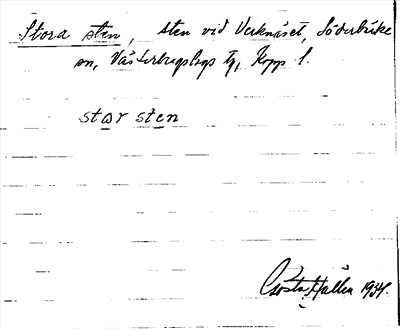 Stora sten, sten vid Verknäset, Söderbärke
sn, Västerbergslags tg, Kopp l.
star sten
Gösta Hallén 1934.